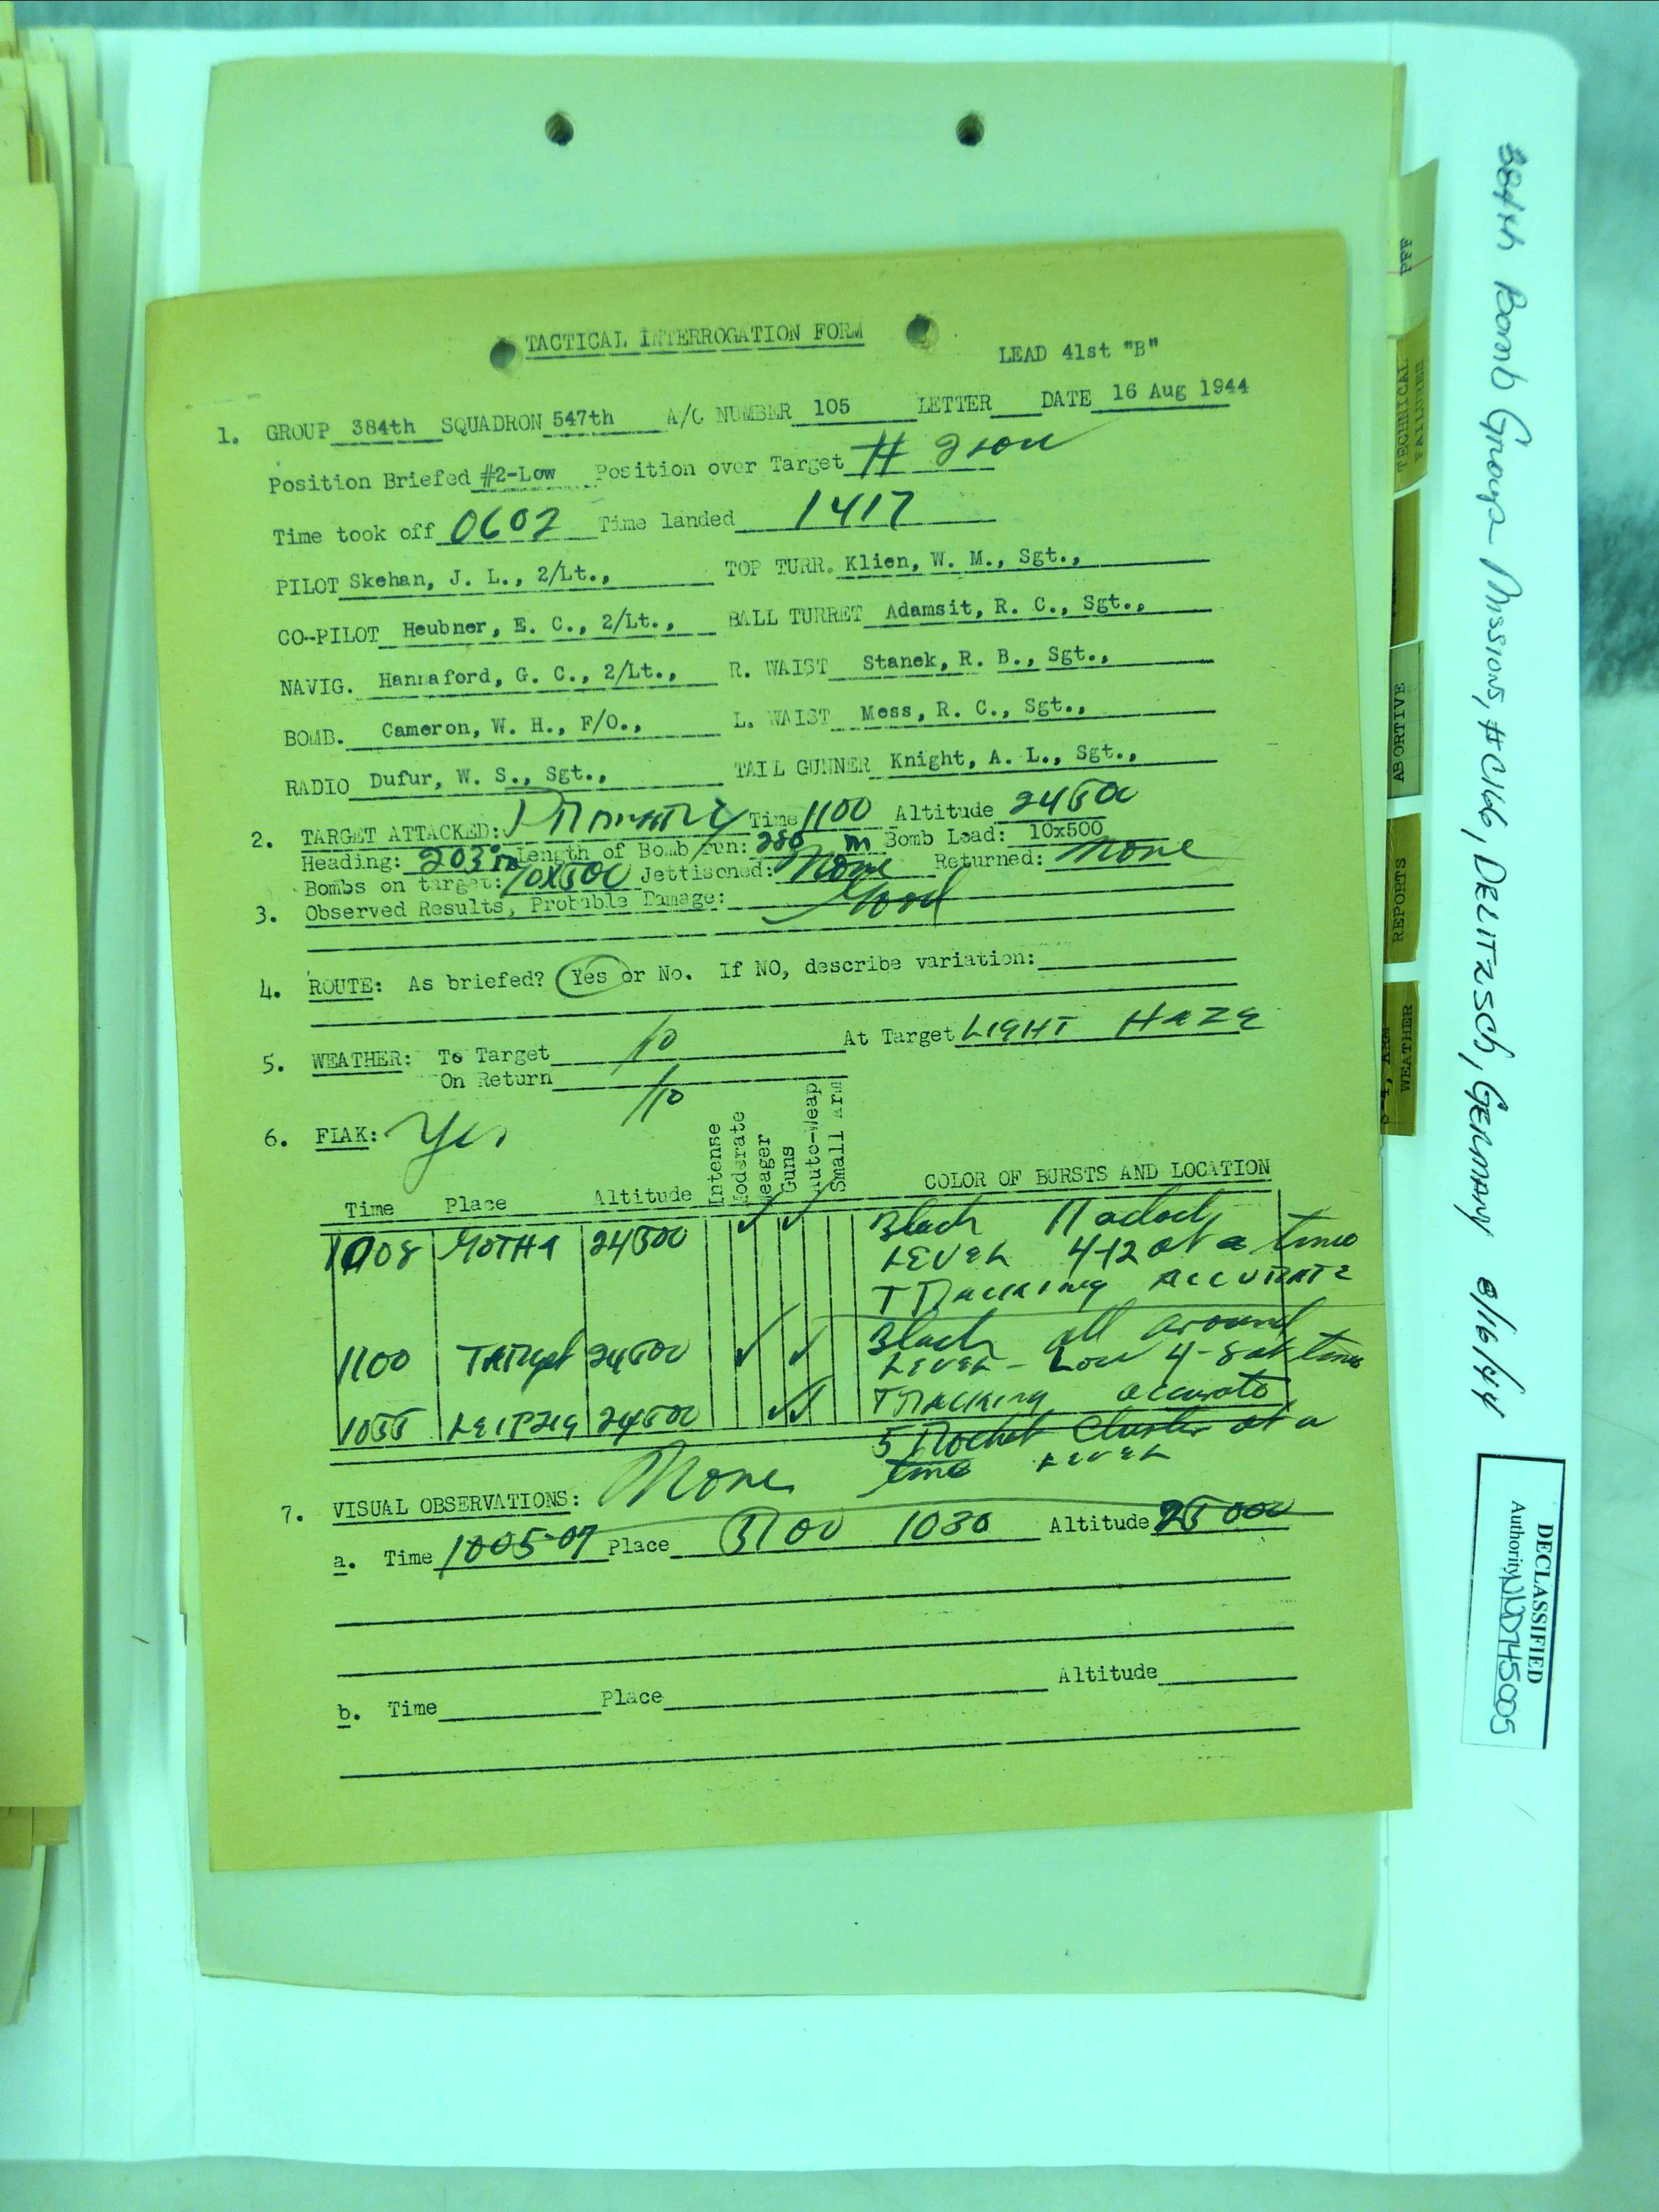 TACTICAL INTERROGATION FORM
LEAD 41st "B"
1. GROUP 384th SQUADRON 547th A/C NUMBER 105 LETTER DATE 16 Aug 1944
Position Briefed #2-Low Position over Target # 2 Low
Time took off 0602 Time landed 1417
PILOT Skehan, J. L., 2/Lt., TOP TURR. Klien, W. M., Sgt.,
CO-PILOT Heubner, E. C., 2/Lt., BALL TURRET Adamsit, R. C., Sgt.,
NAVIG. Hannaford, G. C., 2/Lt., R. WAIST Stanek, R. B., Sgt.,
BOMB. Cameron, W. H., F/O., L. WAIST Moss, R. C., Sgt.,
RADIO Dufur, W. S., Sgt., TAIL GUNNER Knight, A. L., Sgt.,
2. TARGET ATTACKED: Primary Time 1100 Altitude 24500
Heading: 203° m Length of Bomb run: 280 m Bomb Load: 10x500
Bombs on target: 10x500 Jettisoned: None Returned: None
3. Observed Results, Probable Damage: Good
4. ROUTE: As briefed? Yes or No. If NO, describe variation:
5. WEATHER: To Target /10 At Target LIGHT HAZE
On Return /10
6. FLAK: Yes
Intense
Moderate
Meager
Guns
Auto-Weap
Small Arm
Time Place Altitude COLOR OF BURSTS AND LOCATION
1008 GOTHA 24500 Black
LEVEL 4-12 at a time
TRACKING ACCURATE
1100 TARget 24500 Black all around
LEVEL - Low 4-8 at time
TRACKING accurate
1055 LEIPZIG 24500 5 Rocket Cluster at a
time LEVEL
7. VISUAL OBSERVATIONS: None
a. Time 1005-07 Place 5100 1030 Altitude 25000
b. Time Place Altitude
384th Bomb Group Missions, #C166, DELITZSCH, GERMANY 8/16/44
DECLASSIFIED
Authority NND745005
PFF
TECHNICAL
FAILURES
ABORTIVE
REPORTS
WEATHER